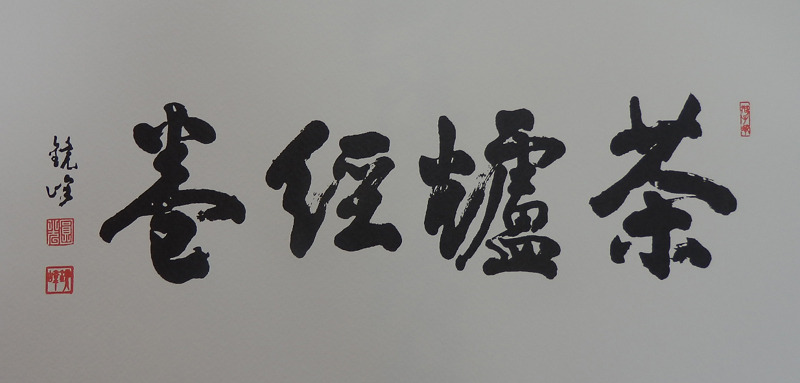 茶爐經卷
鏡峰